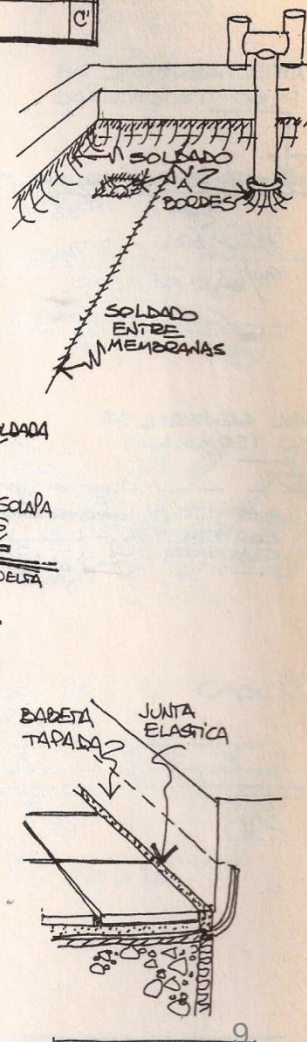 C'
SOLDADO
A
BORDES
SOLDADO
ENTRE
MEMBRANAS
LDADA
SOLAPA
DELTA
BABETA
TAPADA
JUNTA
ELASTICA
9